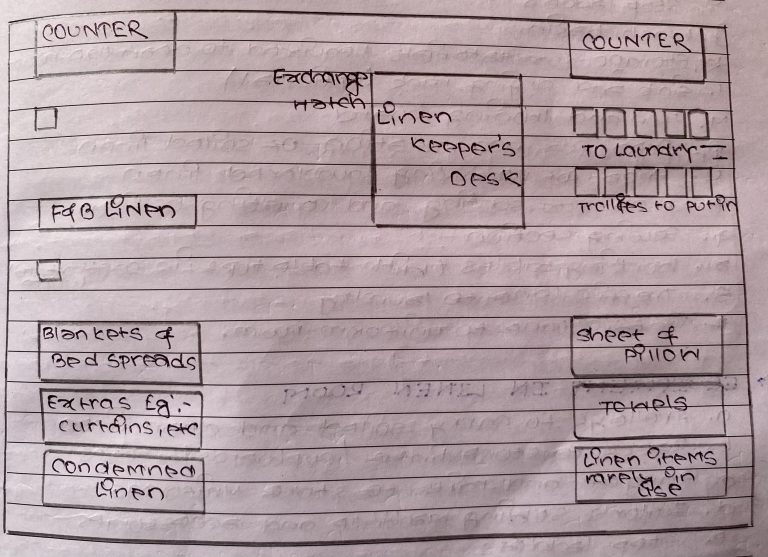 COUNTER
COUNTER
Exchange
Hatch
Linen
Keeper's
Desk
TO Laundry
Trollies to put in
F&B Linen
Blankets &
Bed Spreads
Sheet &
Pillow
Extras Eg:-
curtains, etc
Towels
Condemned
Linen
Linen items
rarely in
Use